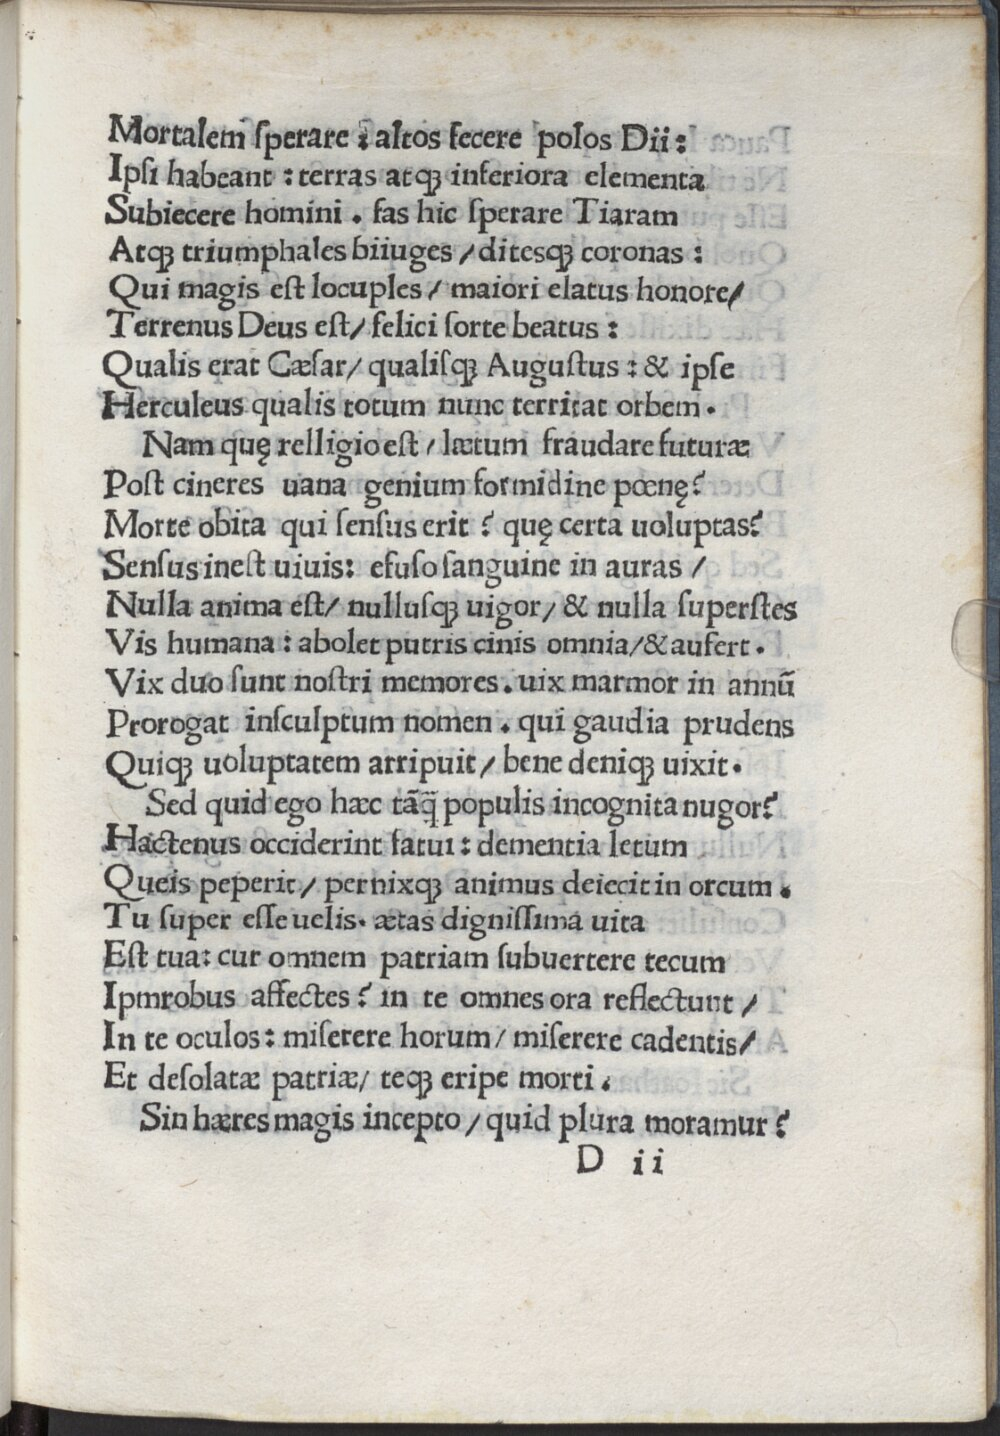 Mortalem ſperare : altos fecere polos Dii :
Ipſi habeant : terras atqꝫ inferiora elementa
Subiecere homini . fas hic ſperare Tiaram
Atqꝫ triumphales biiuges / ditesqꝫ coronas :
Qui magis eſt locuples / maiori elatus honore /
Terrenus Deus eſt / felici ſorte beatus :
Qualis erat Cæſar / qualiſqꝫ Auguſtus : & ipſe
Herculeus qualis totum nunc territat orbem .
Nam quę relligio eſt / lætum fraudare futuræ
Poſt cineres uana genium formidine pœnę ?
Morte obita qui ſenſus erit ? quę certa uoluptas ?
Senſus ineſt uiuis : efuſo ſanguine in auras /
Nulla anima eſt / nullusqꝫ uigor / & nulla ſuperſtes
Vis humana : abolet putris cinis omnia / & aufert .
Vix duo ſunt noſtri memores . uix marmor in annū
Prorogat inſculptum nomen . qui gaudia prudens
Quiqꝫ uoluptatem arripuit / bene deniqꝫ uixit .
Sed quid ego hæc tāq̄ populis incognita nugor ?
Hactenus occiderint fatui : dementia letum
Queis peperit / pernixqꝫ animus deiecit in orcum .
Tu ſuper eſſe uelis . ætas digniſſima uita
Eſt tua : cur omnem patriam ſubuertere tecum
Ipmrobus affectes ? in te omnes ora reflectunt /
In te oculos : miſerere horum / miſerere cadentis /
Et deſolatæ patriæ / teqꝫ eripe morti .
Sin hæres magis incepto / quid plura moramur ?
D ii